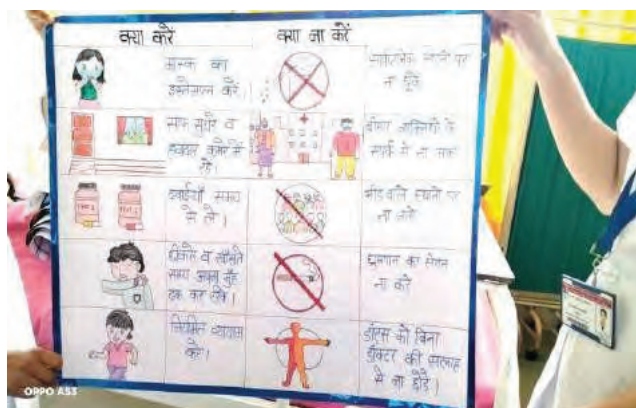 क्या करें क्या ना करें
मास्क का
इस्तेमाल करें।
सार्वजनिक स्थानों पर
ना थूकें
साफ सुथरे व
हवादार कमरे में
रहें।
बीमार व्यक्तियों के
संपर्क में ना जाए
दवाईयाँ समय
से लें।
भीड़ वाले स्थानों पर
ना जाये
छींकते व खाँसते
समय अपना मुँह
ढक कर रखें।
धूम्रपान का सेवन
ना करें
नियमित व्यायाम
करें।
डॉट्स को बिना
डॉक्टर की सलाह
से ना छोड़ें।
OPPO A53